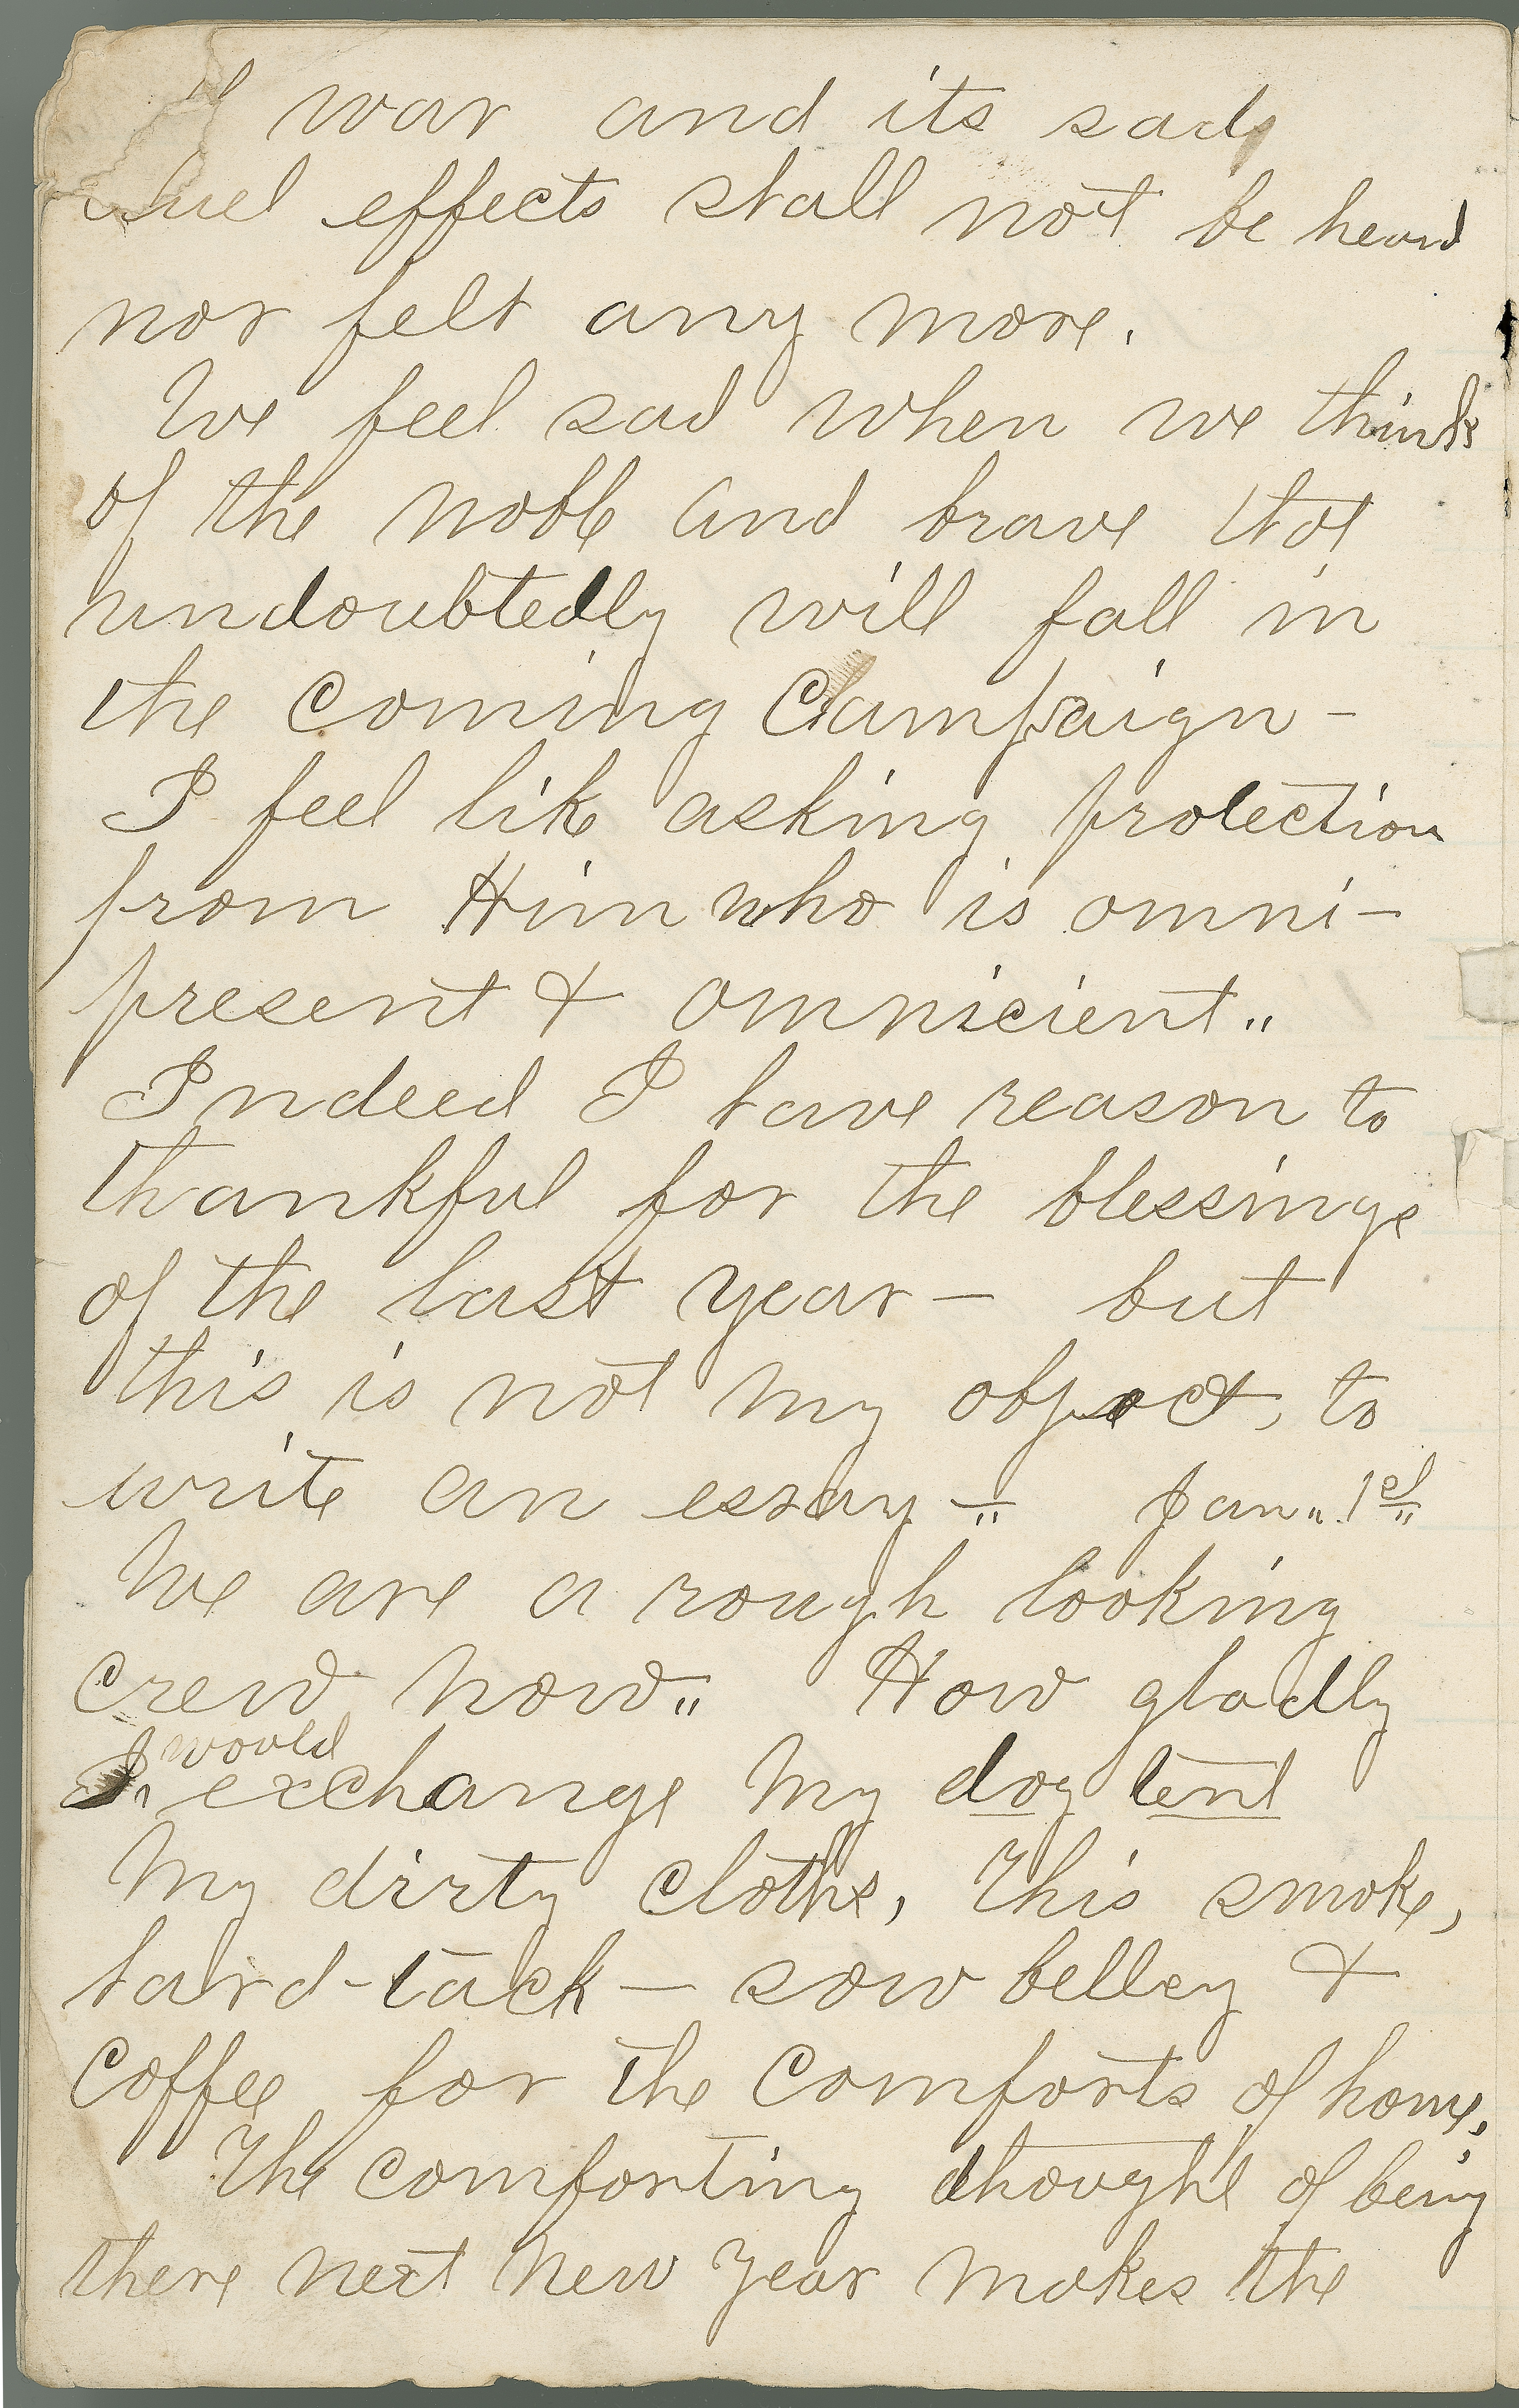 war and its sad,
cruel effects shall not be heard
nor felt any more.
We feel sad when we think
of the noble and brave that
undoubtedly will fall in
the coming Campaign -
I feel like asking protection
from Him who is omni-
present & omnicient„
Indeed I have reason to
thankful for the blessings
of the last year - but
this is not my object, to
write an essay -„ Jan„ 1st„
We are a rough looking
crew now„ How gladly
I would exchange my dog tent
My dirty cloths, This smoke,
hard-tack - sow belley &
coffee for the comforts of home;
The comforting thought of being
there next New Year makes the